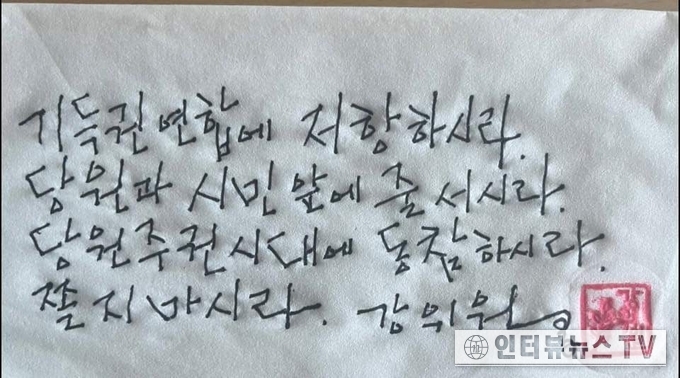 기득권 연합에 저항하시라.
당원과 시민 앞에 줄 서시라.
당원주권시대에 동참하시라.
쫄지 마시라. 강위원
인터뷰뉴스TV